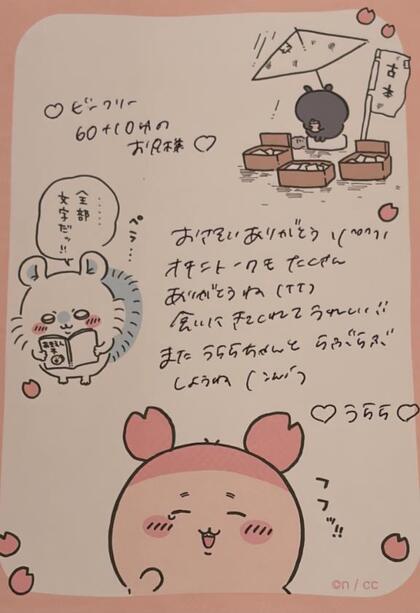 ♡ ビーフリー
60+10分の
お兄様 ♡
古本
……
全部
文字だッ!!
ペラ…
おさそいありがとう \(^^)/
オキニトークも たくさん
ありがとうね (TT)
会いに きてくれて うれしい!!
また うららちゃんと らぶらぶ
しようね
♡ うらら ♡
フフ…ッ!!
©n / cc